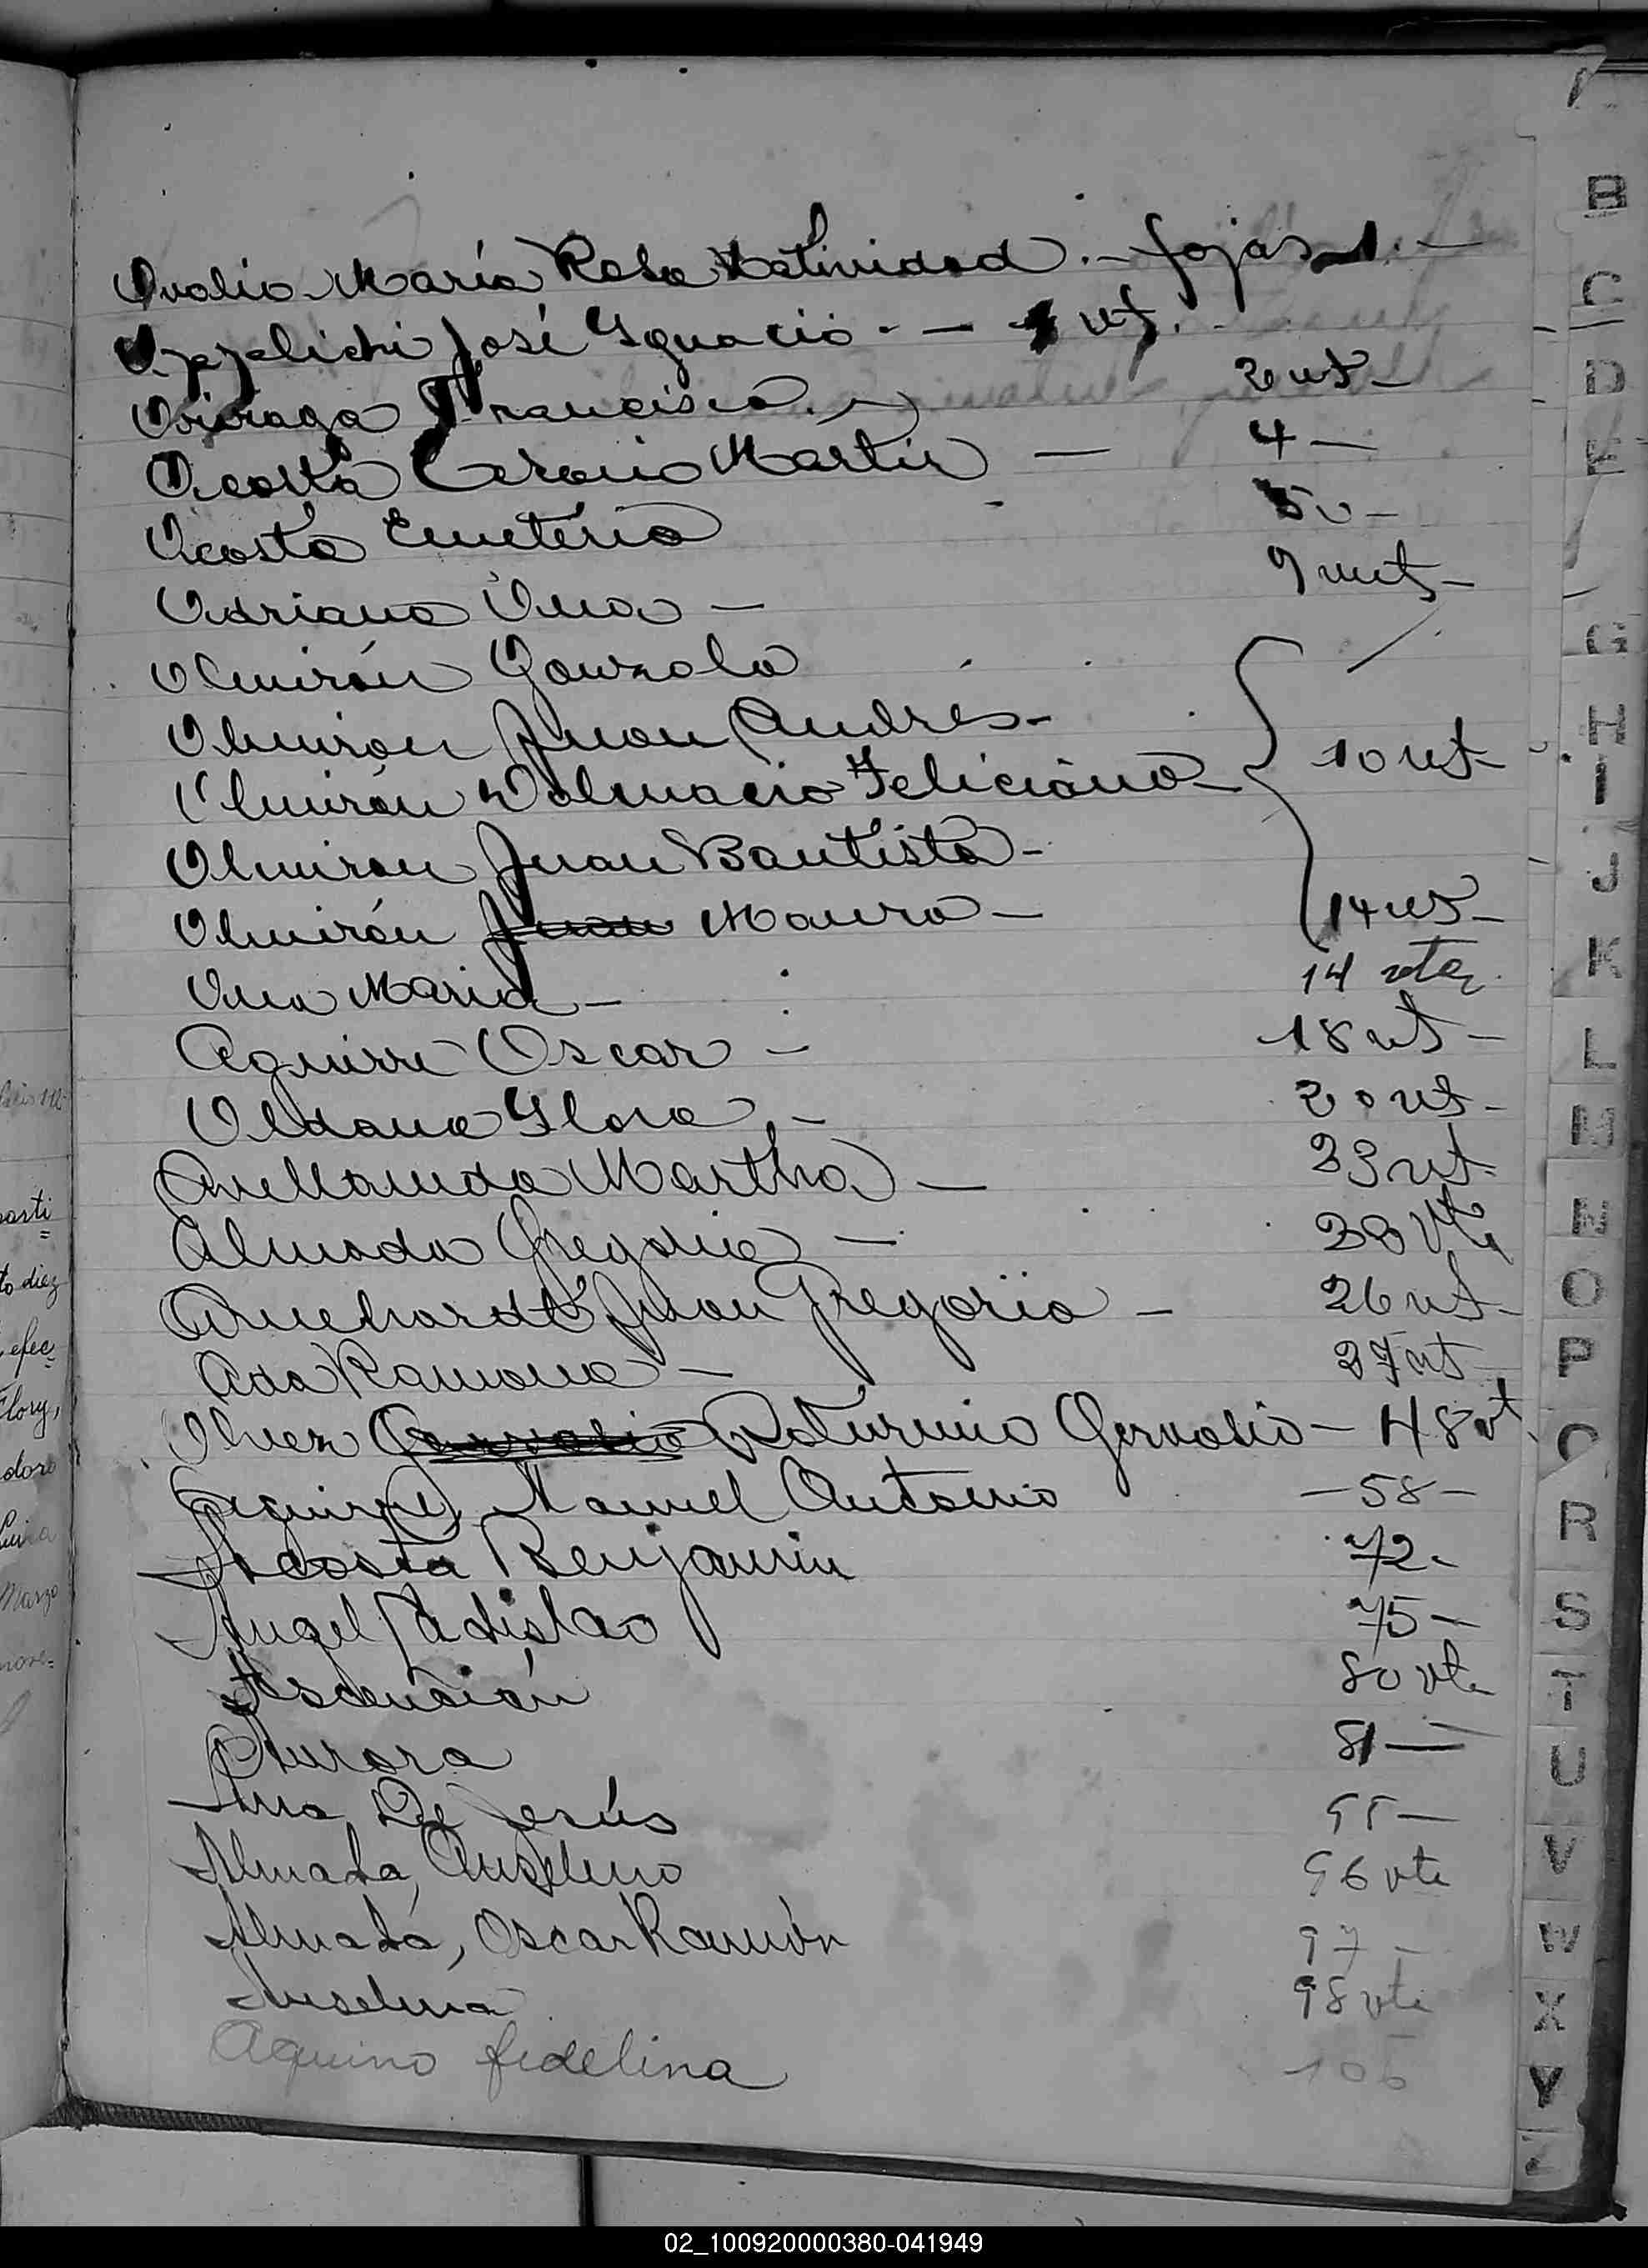 Avalio María Rosa Natividad. - fojas 1. -
José Ygnacio - - 1 vt.
Francisca. 2 vt -
Acosta Martir - 4 -
Acosta Emeteria 50 -
Adriana Ana - 9 vut -
Almirón Gonzala
Almiron Juan Andrés -
Almirón Dalmacio Feliciano - 10 vt -
Almiron Juan Bautista -
Almirón Juan Maura - 14 vt -
Ana Maria - 14 vta
Aguirre Oscar - 18 vt -
Aldana Flora - 20 vt -
Avellaneda Martha - 23 vt -
Almada Gregoria - 23 Vta
Juan Gregorio - 26 vt -
Ada Ramona - 27 vt -
Alvez Gervasio Saturnino Gervasio - 48 vt
Aguirre, Manuel Antonio - 58 -
Acosta Benjamin 72 -
Angel Ladislao 75 -
Ascención 80 vta
Aurora 81 -
Ana De Jesús 95 -
Almada, Anselmo 96 vta
Almada, Oscar Ramón 97 -
Anselma 98 vta
Aquino fidelina 106
B
C
D
E
G
H
I
J
K
L
M
N
O
P
R
S
T
U
V
W
X
Y
02_100920000380-041949